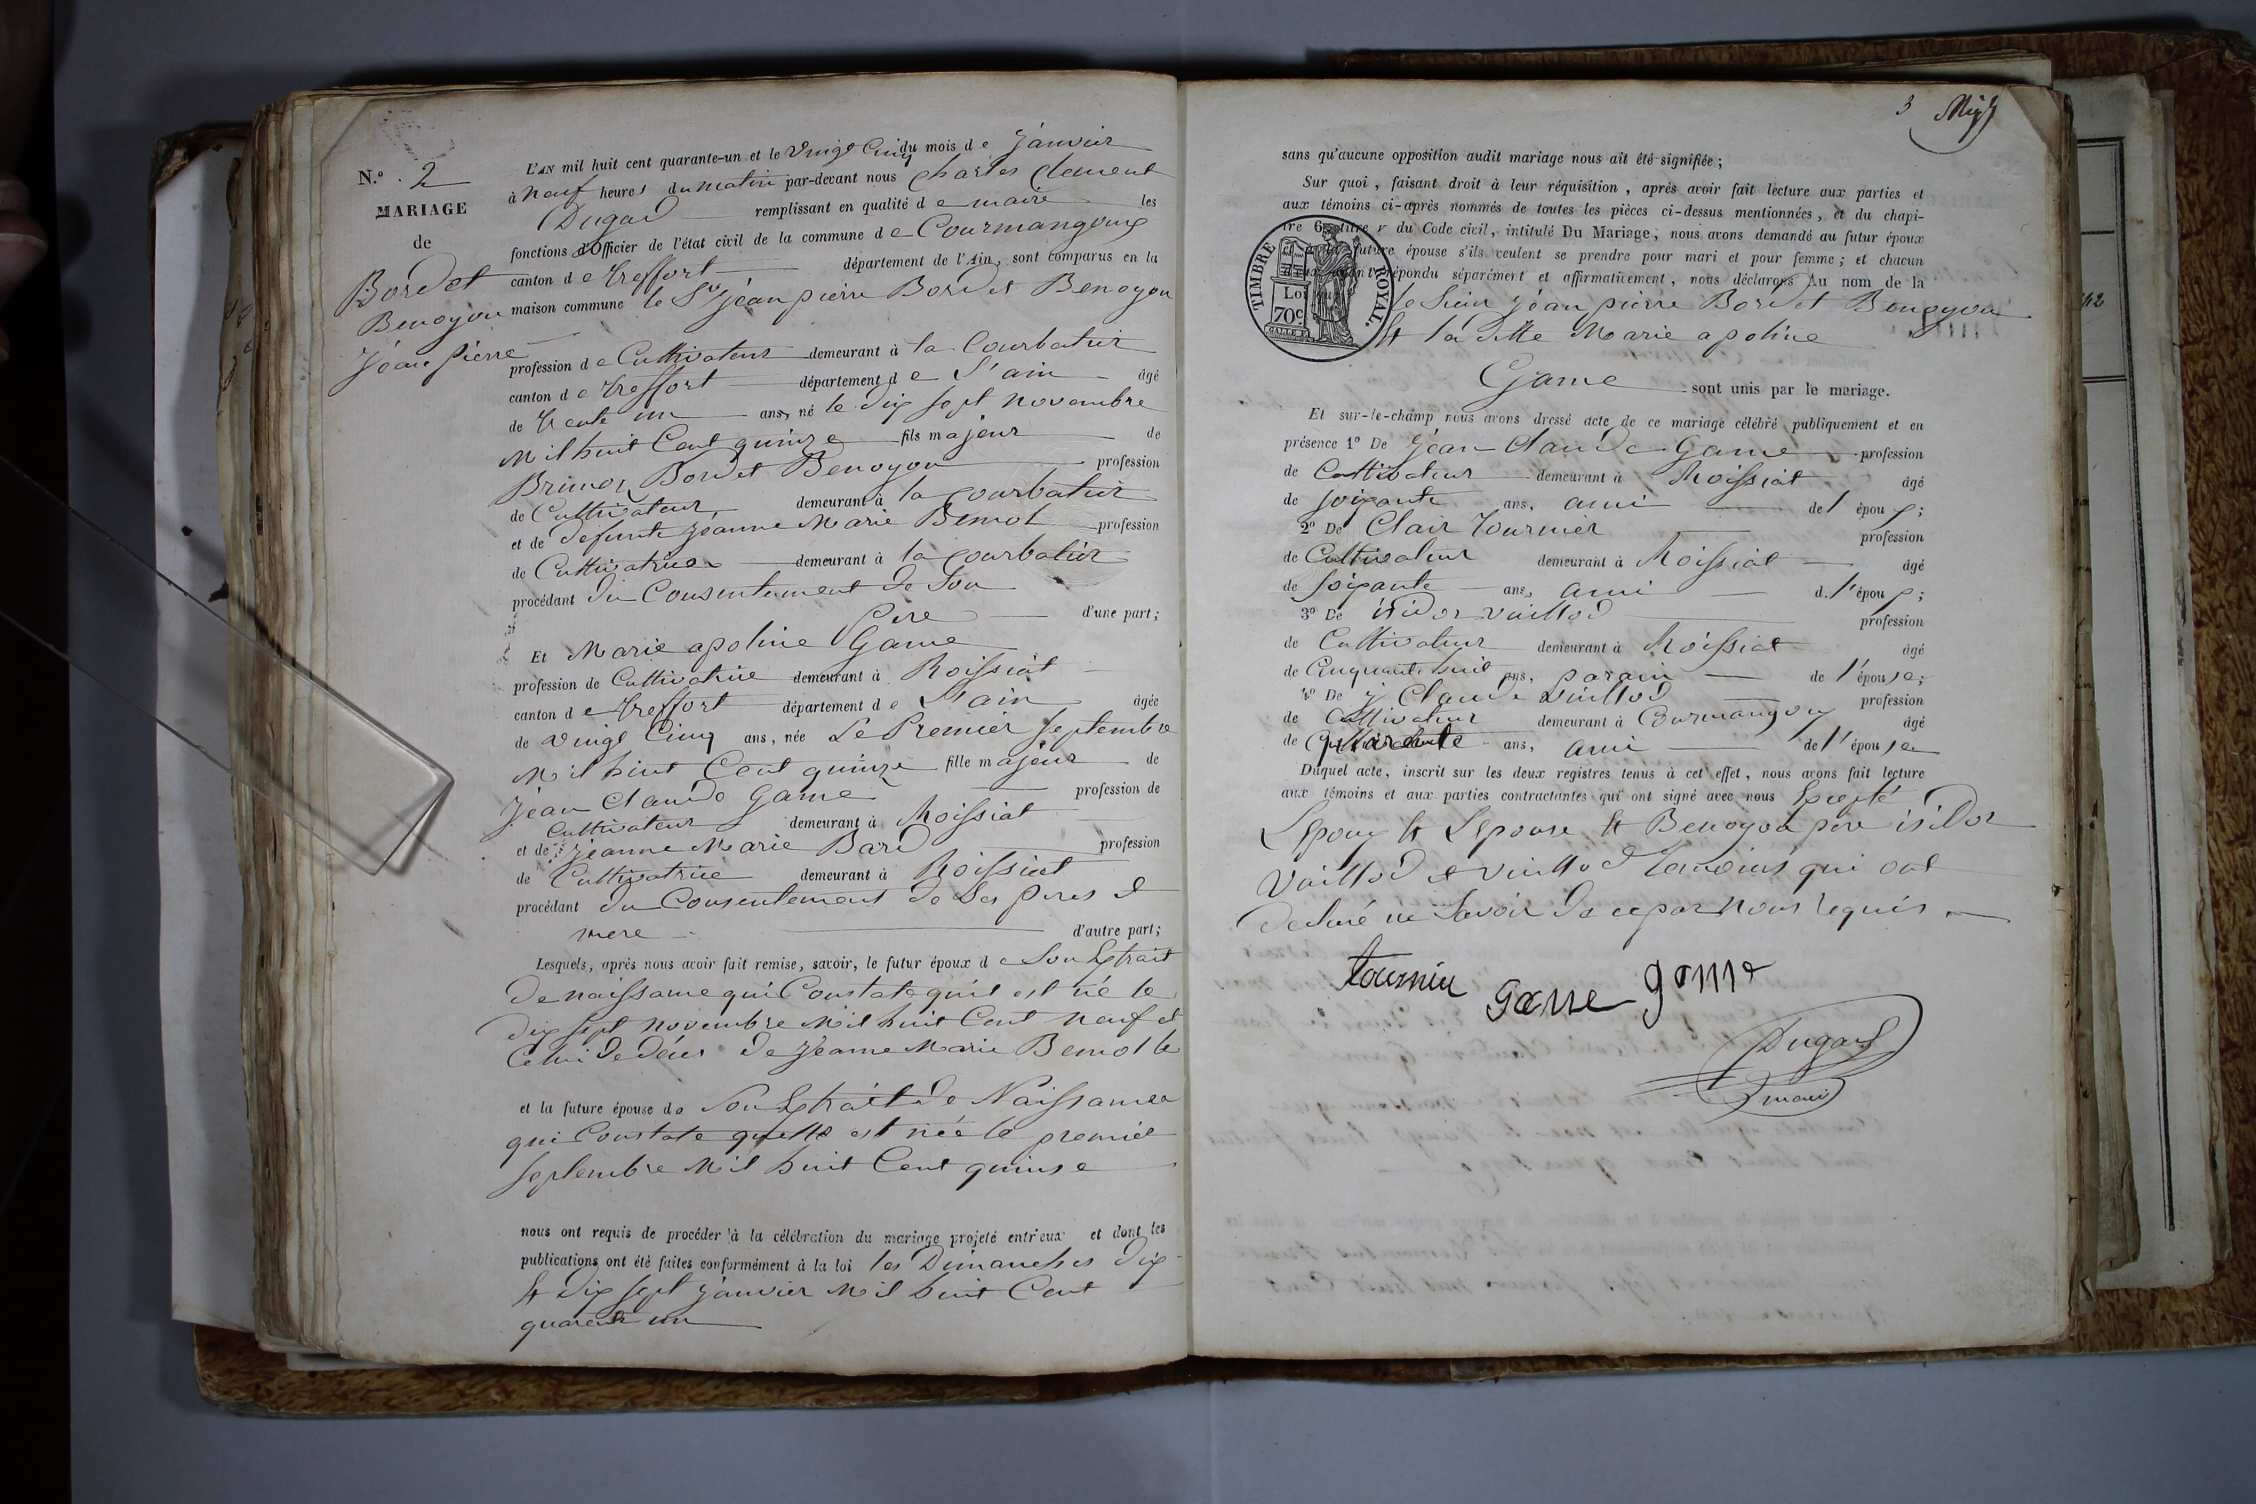 N.º 2
MARIAGE
de
Bordet
Benoyon
jean pierre
L'AN mil huit cent quarante-un et le vingt Cinq du mois de janvier
à neuf heures du matin par-devant nous Charles Clement
Dugad remplissant en qualité de maire les
fonctions d'Officier de l'état civil de la commune de Courmangoux
canton de treffort département de l'Ain, sont comparus en la
maison commune le Sr jean pierre Bordet Benoyon
profession de Cultivateur demeurant à la Courbatier
canton de treffort département de l'ain âgé
de trente un ans, né le dix sept novembre
mil huit Cent quinze fils majeur de
Bordet Benoyon profession
de Cultivateur demeurant à la Courbatier
et de defunte jeanne Marie Bemol profession
de Cultivatrice demeurant à la Courbatier
procédant du Consentement de Son
pere d'une part;
Et Marie apoline Game
profession de Cultivatrice demeurant à Roissiat
canton de treffort département de l'ain âgée
de vingt Cinq ans, née Le Premier Septembre
mil huit Cent quinze fille majeur de
jean Claude Game profession de
Cultivateur demeurant à Roissiat
et de jeanne Marie Bard profession
de Cultivatrice demeurant à Roissiat
procédant du Consentement de Ses peres et
mere d'autre part;
Lesquels, après nous avoir fait remise, savoir, le futur époux de Son Extrait
de naissance qui Constate quil est né le
dix sept novembre mil huit Cent neuf et
Celui de déces de jeanne Marie Bemol le
et la future épouse de Son Extrait de Naissance
qui Constate quelle est née le premier
septembre mil huit Cent quinse
nous ont requis de procéder à la célébration du mariage projeté entr'eux et dont les
publications ont été faites conformément à la loi les Dimanches dix
et dix sept janvier mil huit Cent
quarente un
3
sans qu'aucune opposition audit mariage nous ait été signifiée;
Sur quoi, faisant droit à leur réquisition, après avoir fait lecture aux parties et
aux témoins ci-après nommés de toutes les pièces ci-dessus mentionnées, et du chapi-
tre 6, titre v du Code civil, intitulé Du Mariage, nous avons demandé au futur époux
future épouse s'ils veulent se prendre pour mari et pour femme; et chacun
répondu séparément et affirmativement, nous déclarons Au nom de la
TIMBRE ROYAL.
Loi
70c
le Sieur jean pierre Bordet Benoyon
et la dlle Marie apoline
Game sont unis par le mariage.
Et sur-le-champ nous avons dressé acte de ce mariage célébré publiquement et en
présence 1º De jean Claude Game profession
de Cultivateur demeurant à Roissiat âgé
de soixante ans, ami de l'époux;
2º De Clair tournier profession
de Cultivateur demeurant à Roissiat âgé
de soixante ans, ami d. l'époux;
3º De isidor vuillod profession
de Cultivateur demeurant à Roissiat âgé
de Cinquante huit ans, parain de l'épouse;
4º De Claude vuillod profession
de Cultivateur demeurant à Courmangoux âgé
de quarente ans, ami de l'épouse
Duquel acte, inscrit sur les deux registres tenus à cet effet, nous avons fait lecture
aux témoins et aux parties contractantes qui ont signé avec nous Excepté
L'epoux et L'epouse et Benoyon pere isidor
vuillod et vuillod temoins qui ont
declaré ne Savoir de ce par nous requis.
tournier game game
Dugad
maire